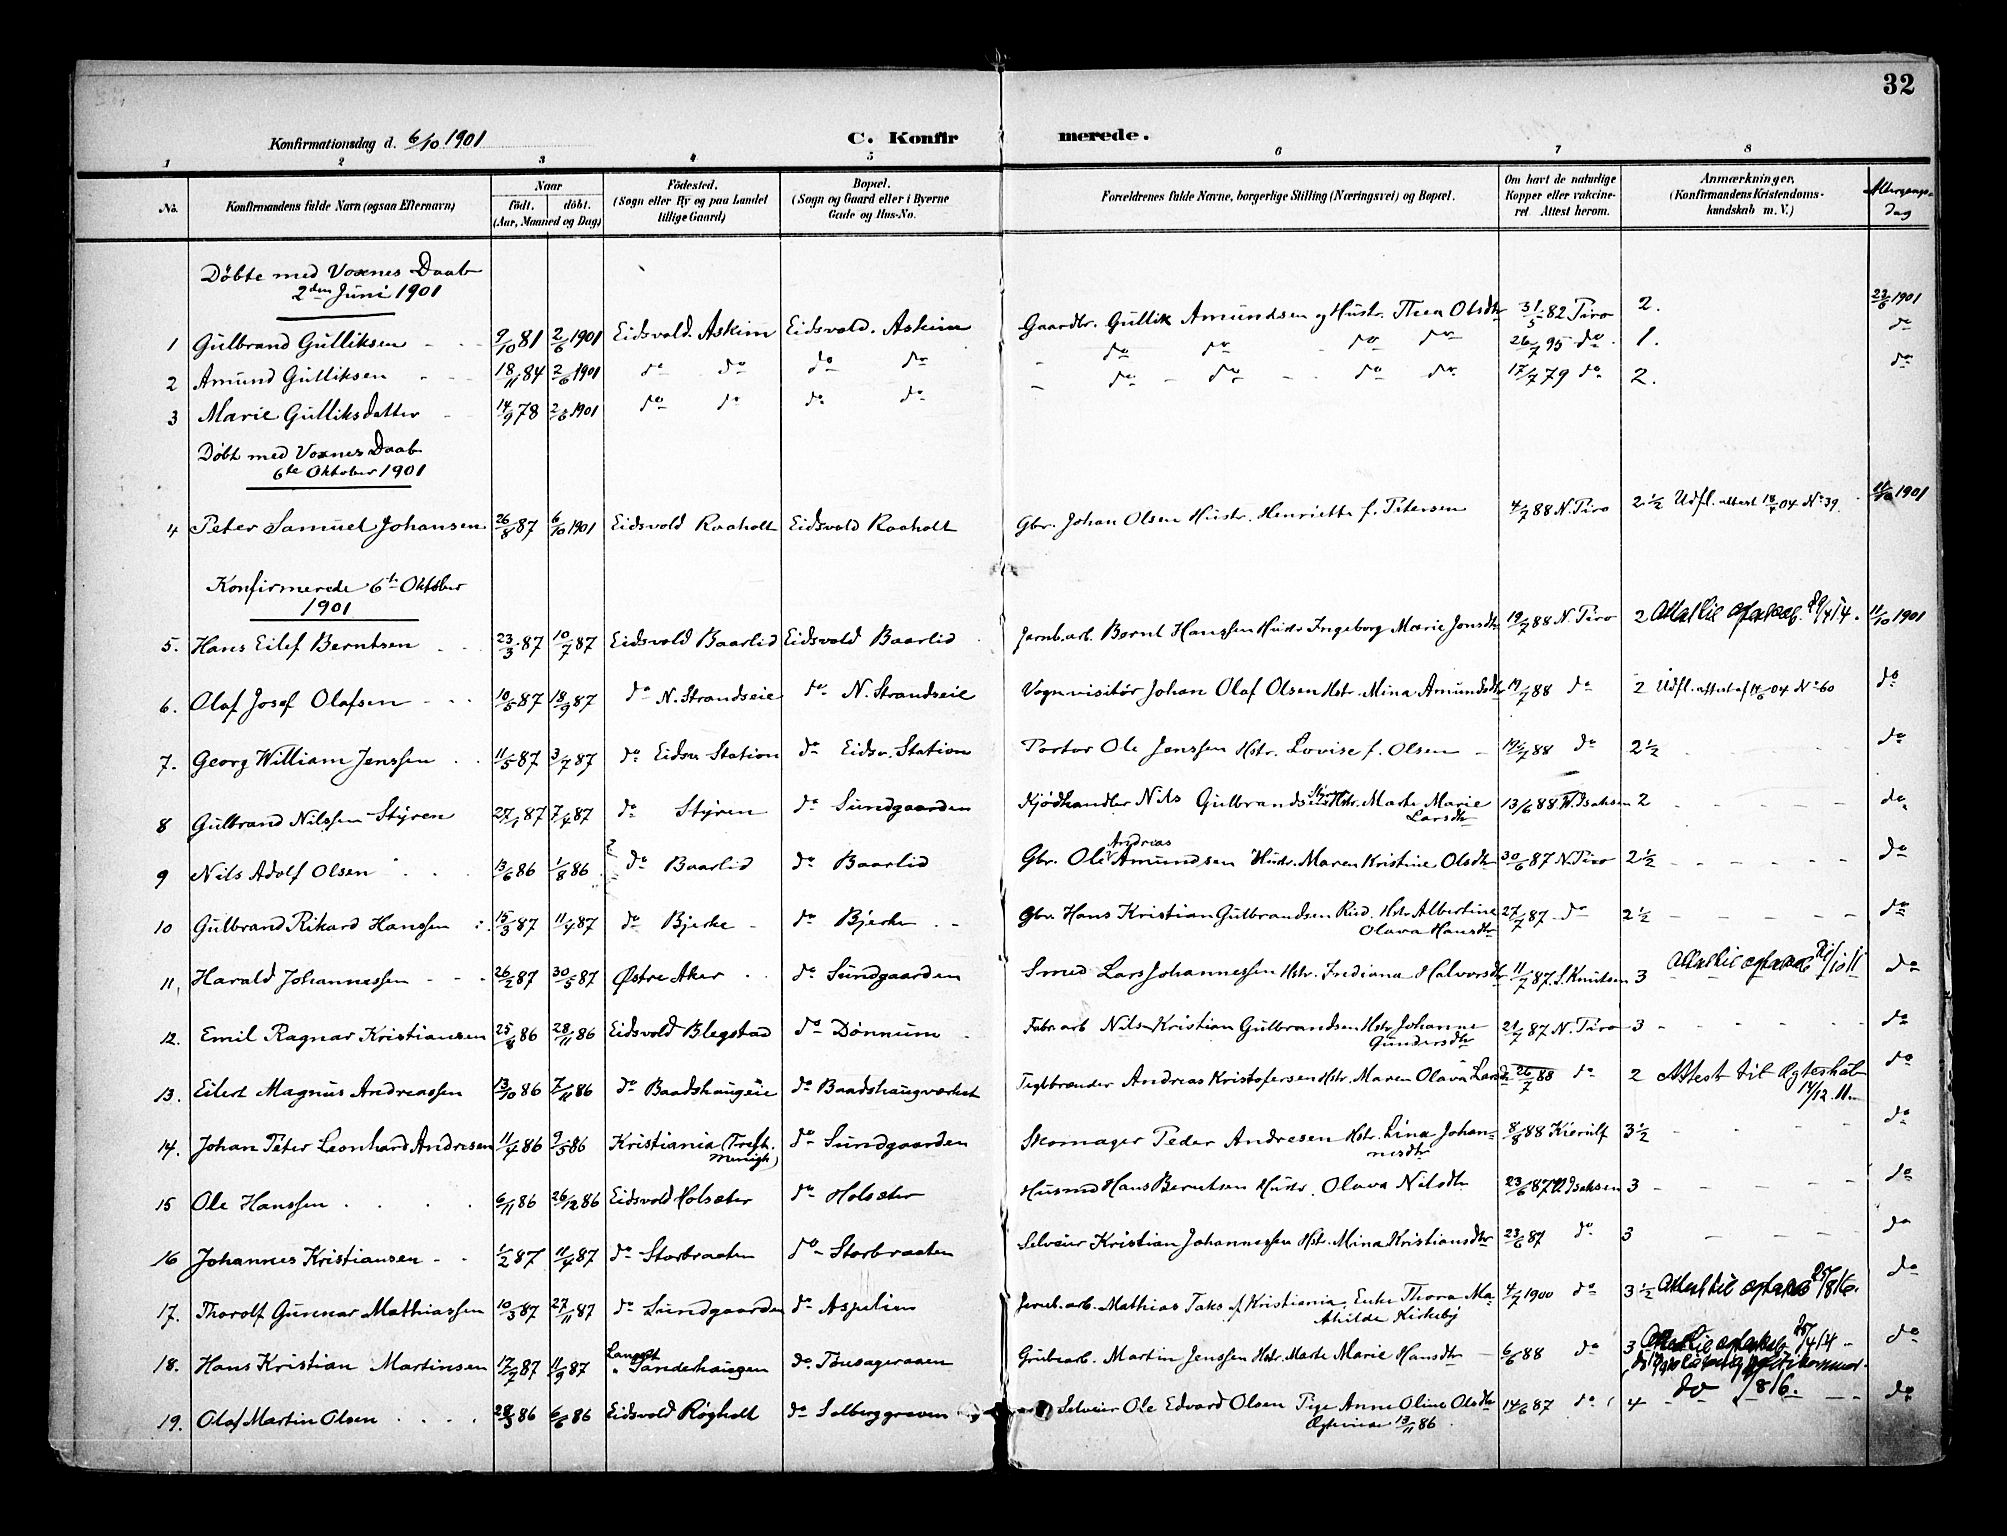 32
Konfirmationsdag d. 6/10 1901
C. Konfirmerede.
1 2 3 4 5 6 7 8
No. Konfirmandens fulde Navn (ogsaa Efternavn) Naar født. døbt. (Aar, Maaned og Dag) Födested. (Sogn eller By og paa Landet tillige Gaard) Bopæl. (Sogn og Gaard eller i Byerne Gade og Hus-No. Forældrenes fulde Navne, borgerlige Stilling (Næringsvei) og Bopæl. Om havt de naturlige Kopper eller vaccineret Attest herom. Anmærkninger. (Konfirmandens Kristendomskundskab m. V.) Altergangsdag
Døbte med Voxnes Daab
2den Juni 1901
1 Gulbrand Gulliksen 9/10 81 2/6 1901 Eidsvold. Askim Eidsvold. Askim Gaardbr. Gullik Amundsen og Hustr. Thea Olsdtr 31/5 82 Tiro 2. 23/6 1901
2 Amund Gulliksen 18/11 84 2/6 1901 do do do do do do do do 26/7 95 do 1. do
3 Marie Gulliksdatter 14/9 78 2/6 1901 do do do do do do do do 17/7 79 do 2. do
Døbt med Voxnes Daab
6te Oktober 1901
4 Peter Samuel Johansen 26/8 87 6/10 1901 Eidsvold Raaholt Eidsvold Raaholt Gbr. Johan Olsen Hustr. Henriette f. Petersen 4/7 88 N. Tiro 2 1/2 Udfl. attest 04 No 39. 11/10 1901
Konfirmerede 6te Oktober
1901
5. Hans Eilef Berntsen 23/3 87 10/7 87 Eidsvold Baarlid Eidsvold Baarlid Jernb.arb. Bernt Hanssen Hustr Ingeborg Marie Jonsdtr 19/7 88 N. Tiro 2 Attest til 29/4 14. 11/10 1901
6. Olaf Josef Olafsen 10/5 87 18/9 87 do N. Strandseie do N. Strandseie Vognvisitør Johan Olaf Olsen Hstr. Mina Amundsdtr 19/7 88 do 2 Udfl. attest af 14/6 04 No 60 do
7. Georg William Jenssen 11/5 87 3/7 87 do Eidsv. Station do Eidsv. Station Portør Ole Jenssen Hstr. Lovise f. Olsen 19/7 88 do 2 1/2 do
8 Gulbrand Nilssen Styren 27/1 87 7/4 87 do Styren do Sundgaarden Kjødhandler Nils Gulbrandsen Hstr. Marte Marie Larsdtr 13/6 88 W. Isaksen 2 do
9 Nils Adolf Olsen 13/6 86 1/8 86 do Baarlid do Baarlid Gbr. Ole Andreas Amundsen Hustr. Maren Kristine Olsdtr 30/6 87 N. Tiro 2 1/2 do
10 Gulbrand Rikard Hanssen 15/3 87 11/4 87 do Bjerke do Bjerke Gbr. Hans Kristian Gulbrandsen Hstr Albertine Olava Hansdtr 27/7 87 do 2 1/2 do
11. Harald Johannessen 26/2 87 30/5 87 Østre Aker do Sundgaarden Smed Lars Johannessen Hstr. Indiana Halvorsdtr 11/7 87. S. Knutsen 3 Attest til do
12. Emil Ragnar Kristiansen 25/8 86 28/11 86 Eidsvold Blegstad do Dønnum Fabr.arb Nils Kristian Gulbrandsen Hstr Johanne Gundersdtr 21/7 87 N. Tiro 3 do
13. Eilert Magnus Andreassen 13/10 86 7/11 86 do Baadshaugeie do Baadshaugverket Teglbrænder Andreas Kristofersen Hstr. Maren Olava Larsdtr 26/7 88 do 2 Attest til Ægteskab 14/12.11 do
14. Johan Peter Leonhard Andresen 11/4 86 9/5 86 Kristiania (Trefk. Menigh.) do Sundgaarden Skomager Peder Andresen Hstr. Lina Johannesdtr 8/8 88 Kierulf 3 1/2 do
15 Ole Hanssen 6/11 86 26/12 86 Eidsvold Holsæter do Holsæter Husmd Hans Berntsen Hustr. Olava Nilsdtr 23/6 87 W. Isaksen 3 do
16 Johannes Kristiansen 1/2 87 11/4 87 do Storbraaten do Storbraaten Selveier Kristian Johannessen Hstr. Mina Kristiansdtr 23/6 87 do 3 do
17. Thorolf Gunnar Mathiassen 10/3 87 27/11 87 do Sundgaarden do Aspelien Jernb.arb. Mathias Taks af Kristiania. Enke Thora Mathilde Kirkeby 4/7 1900 do 3 1/2 Attest til 25/8 16. do
18. Hans Kristian Martinsen 17/7 87 11/9 87 Langset Sanderhaugen do Tusageraaen Grubearb. Martin Jenssen Hstr. Marte Marie Hansdtr 6/6 88 do 3 Attest til 25/4 14 do
19. Olaf Martin Olsen 28/3 86 6/6 86 Eidsvold Røgholt do Solberggraven Selveier Ole Edvard Olsen Pige Anne Oline Olsdtr 13/11 86 14/6 87 do 4 do 1/8 16. do